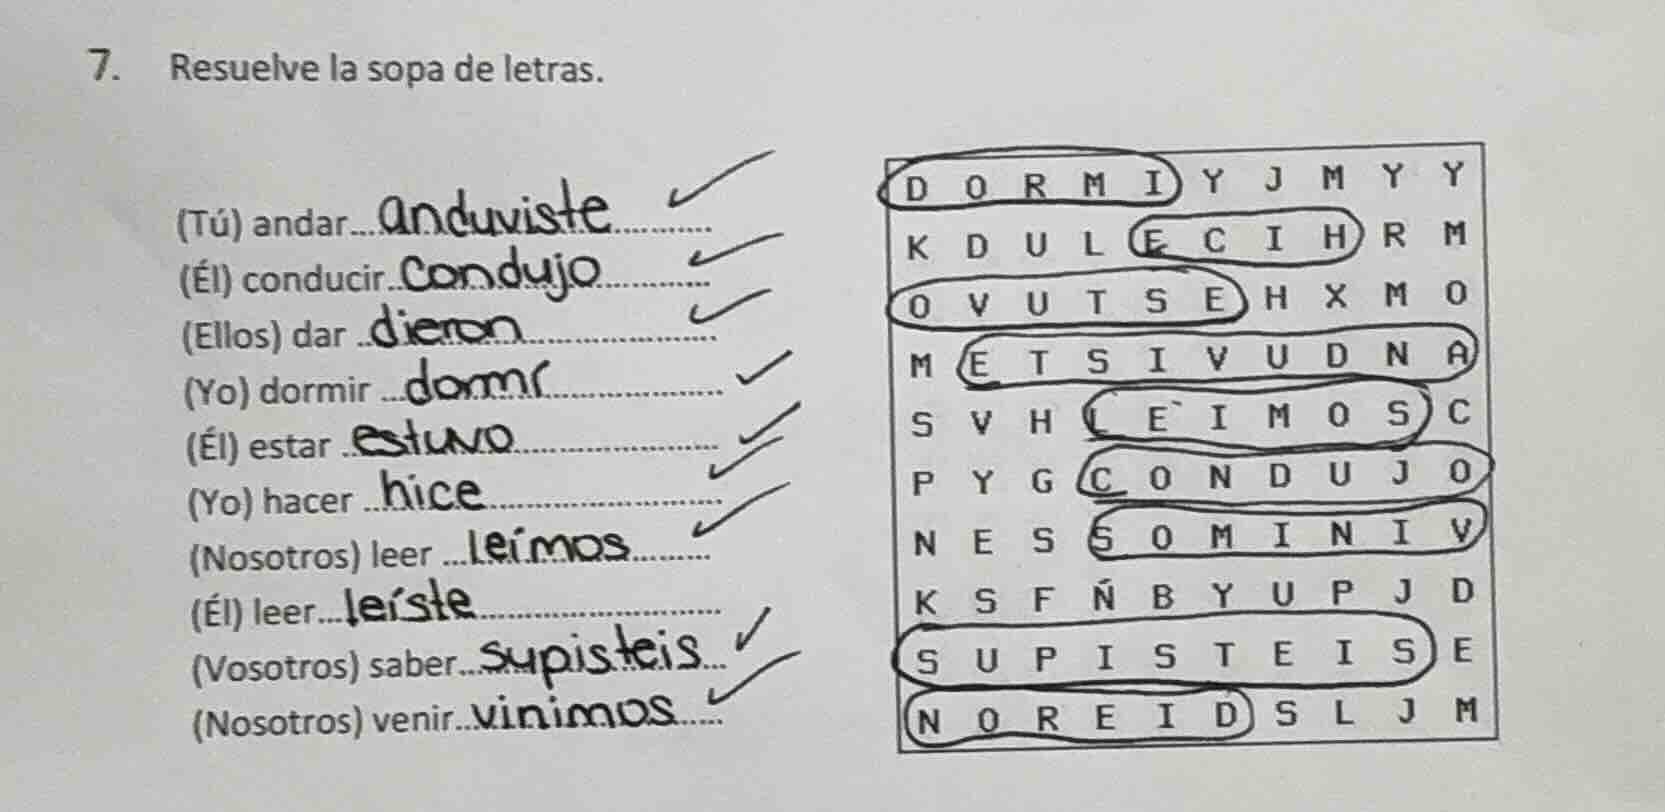 7. Resuelve la sopa de letras.
(Tú) andar...anduviste..........
(Él) conducir..condujo.............
(Ellos) dar ..dieron......................
(Yo) dormir ...dormí....................
(Él) estar ..estuvo........................
(Yo) hacer ..hice...........................
(Nosotros) leer ...leímos.........
(Él) leer...leíste............................
(Vosotros) saber...supisteis...
(Nosotros) venir..vinimos.....
D O R M I Y J M Y Y
K D U L E C I H R M
O V U T S E H X M O
M E T S I V U D N A
S V H L E I M O S C
P Y G C O N D U J O
N E S S O M I N I V
K S F Ñ B Y U P J D
S U P I S T E I S E
N O R E I D S L J M